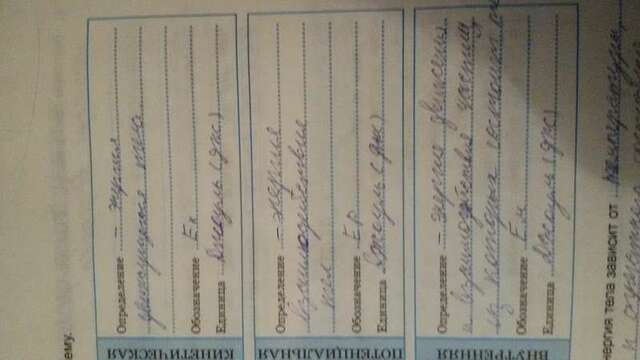 ему.
КИНЕТИЧЕСКАЯ
Определение – энергия
движущегося тела
Обозначение Ек
Единица джоуль (дж)
ПОТЕНЦИАЛЬНАЯ
Определение – энергия
взаимодействия
тел
Обозначение Ер
Единица джоуль (дж)
ВНУТРЕННЯЯ
Определение – энергия движения
и взаимодействия частиц,
из которых состоит
Обозначение Ен
Единица джоуль (дж)
нергия тела зависит от температуры,